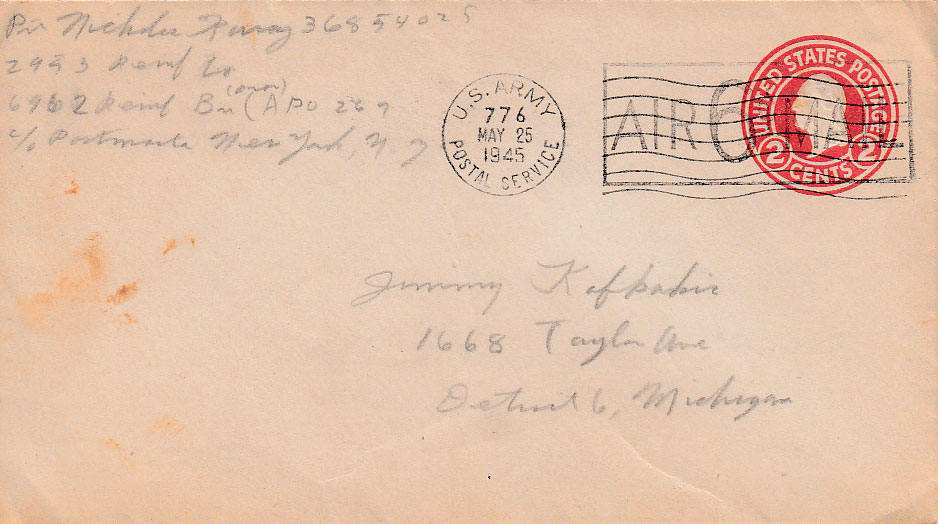 Pvt Nicholas 36854025
2993 Reinf Co
6962 Reinf Bn (Prov) (APO 267
c/o Postmaster New York N Y
U.S. ARMY
776
MAY 25
1945
POSTAL SERVICE
AIR 6¢ MAIL
UNITED STATES POSTAGE
2 CENTS 2
Jimmy
1668 Taylor Ave
Detroit 6, Michigan